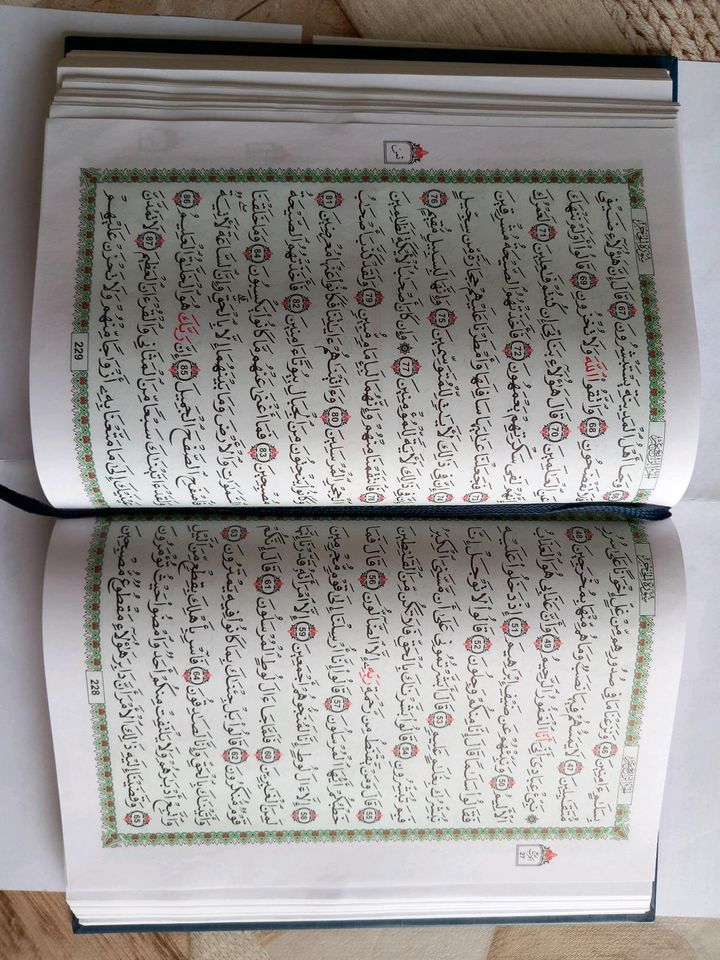 سُورَةُ الْحِجْرِ
بِسَلَٰمٍ ءَامِنِينَ (46) وَنَزَعْنَا مَا فِي صُدُورِهِم مِّنْ غِلٍّ إِخْوَٰنًا عَلَىٰ سُرُرٍ
مُّتَقَٰبِلِينَ (47) لَا يَمَسُّهُمْ فِيهَا نَصَبٌ وَمَا هُم مِّنْهَا بِمُخْرَجِينَ (48)
۞ نَبِّئْ عِبَادِي أَنِّي أَنَا الْغَفُورُ الرَّحِيمُ (49) وَأَنَّ عَذَابِي هُوَ الْعَذَابُ
الْأَلِيمُ (50) وَنَبِّئْهُمْ عَن ضَيْفِ إِبْرَٰهِيمَ (51) إِذْ دَخَلُوا عَلَيْهِ
فَقَالُوا سَلَٰمًا قَالَ إِنَّا مِنكُمْ وَجِلُونَ (52) قَالُوا لَا تَوْجَلْ إِنَّا
نُبَشِّرُكَ بِغُلَٰمٍ عَلِيمٍ (53) قَالَ أَبَشَّرْتُمُونِي عَلَىٰ أَن مَّسَّنِيَ الْكِبَرُ
فَبِمَ تُبَشِّرُونَ (54) قَالُوا بَشَّرْنَٰكَ بِالْحَقِّ فَلَا تَكُن مِّنَ الْقَٰنِطِينَ
(55) قَالَ وَمَن يَقْنَطُ مِن رَّحْمَةِ رَبِّهِ إِلَّا الضَّالُّونَ (56) قَالَ فَمَا
خَطْبُكُمْ أَيُّهَا الْمُرْسَلُونَ (57) قَالُوا إِنَّا أُرْسِلْنَا إِلَىٰ قَوْمٍ مُّجْرِمِينَ
(58) إِلَّا ءَالَ لُوطٍ إِنَّا لَمُنَجُّوهُمْ أَجْمَعِينَ (59) إِلَّا امْرَأَتَهُ قَدَّرْنَا إِنَّهَا
لَمِنَ الْغَٰبِرِينَ (60) فَلَمَّا جَاءَ ءَالَ لُوطٍ الْمُرْسَلُونَ (61) قَالَ إِنَّكُمْ
قَوْمٌ مُّنكَرُونَ (62) قَالُوا بَلْ جِئْنَٰكَ بِمَا كَانُوا فِيهِ يَمْتَرُونَ (63)
وَأَتَيْنَٰكَ بِالْحَقِّ وَإِنَّا لَصَٰدِقُونَ (64) فَأَسْرِ بِأَهْلِكَ بِقِطْعٍ مِّنَ اللَّيْلِ
وَاتَّبِعْ أَدْبَٰرَهُمْ وَلَا يَلْتَفِتْ مِنكُمْ أَحَدٌ وَامْضُوا حَيْثُ تُؤْمَرُونَ
(65) وَقَضَيْنَا إِلَيْهِ ذَٰلِكَ الْأَمْرَ أَنَّ دَابِرَ هَٰؤُلَاءِ مَقْطُوعٌ مُّصْبِحِينَ
228
ثمن
سُورَةُ الْحِجْرِ
(66) وَجَاءَ أَهْلُ الْمَدِينَةِ يَسْتَبْشِرُونَ (67) قَالَ إِنَّ هَٰؤُلَاءِ ضَيْفِي
فَلَا تَفْضَحُونِ (68) وَاتَّقُوا اللَّهَ وَلَا تُخْزُونِ (69) قَالُوا أَوَلَمْ نَنْهَكَ
عَنِ الْعَٰلَمِينَ (70) قَالَ هَٰؤُلَاءِ بَنَاتِي إِن كُنتُمْ فَٰعِلِينَ (71) لَعَمْرُكَ
إِنَّهُمْ لَفِي سَكْرَتِهِمْ يَعْمَهُونَ (72) فَأَخَذَتْهُمُ الصَّيْحَةُ مُشْرِقِينَ
(73) فَجَعَلْنَا عَٰلِيَهَا سَافِلَهَا وَأَمْطَرْنَا عَلَيْهِمْ حِجَارَةً مِّن سِجِّيلٍ
(74) إِنَّ فِي ذَٰلِكَ لَأٓيَٰتٍ لِّلْمُتَوَسِّمِينَ (75) وَإِنَّهَا لَبِسَبِيلٍ مُّقِيمٍ (76)
إِنَّ فِي ذَٰلِكَ لَأٓيَةً لِّلْمُؤْمِنِينَ (77) ۞ وَإِن كَانَ أَصْحَٰبُ الْأَيْكَةِ لَظَٰلِمِينَ
(78) فَانتَقَمْنَا مِنْهُمْ وَإِنَّهُمَا لَبِإِمَامٍ مُّبِينٍ (79) وَلَقَدْ كَذَّبَ أَصْحَٰبُ
الْحِجْرِ الْمُرْسَلِينَ (80) وَءَاتَيْنَٰهُمْ ءَايَٰتِنَا فَكَانُوا عَنْهَا مُعْرِضِينَ (81)
وَكَانُوا يَنْحِتُونَ مِنَ الْجِبَالِ بُيُوتًا ءَامِنِينَ (82) فَأَخَذَتْهُمُ الصَّيْحَةُ
مُصْبِحِينَ (83) فَمَا أَغْنَىٰ عَنْهُم مَّا كَانُوا يَكْسِبُونَ (84) وَمَا خَلَقْنَا
السَّمَٰوَٰتِ وَالْأَرْضَ وَمَا بَيْنَهُمَا إِلَّا بِالْحَقِّ وَإِنَّ السَّاعَةَ لَأٓتِيَةٌ
فَاصْفَحِ الصَّفْحَ الْجَمِيلَ (85) إِنَّ رَبَّكَ هُوَ الْخَلَّٰقُ الْعَلِيمُ (86)
وَلَقَدْ ءَاتَيْنَٰكَ سَبْعًا مِّنَ الْمَثَانِي وَالْقُرْءَانَ الْعَظِيمَ (87) لَا تَمُدَّنَّ
عَيْنَيْكَ إِلَىٰ مَا مَتَّعْنَا بِهِ أَزْوَٰجًا مِّنْهُمْ وَلَا تَحْزَنْ عَلَيْهِمْ
229